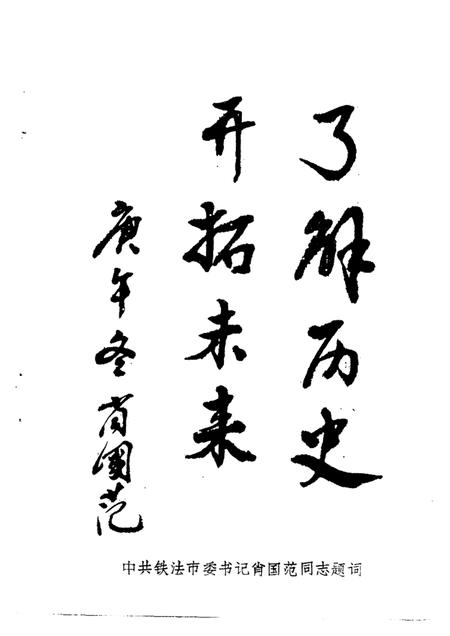 了解历史
开拓未来
庚午冬 肖国范
中共铁法市委书记肖国范同志题词